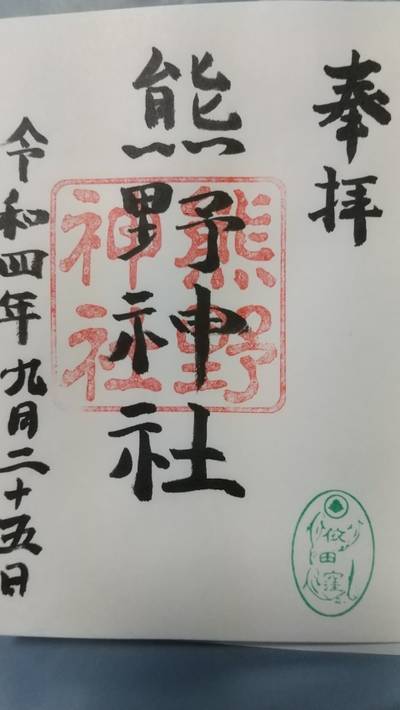 奉拝
熊野神社
熊野
神社
令和四年九月二十五日
依田窪